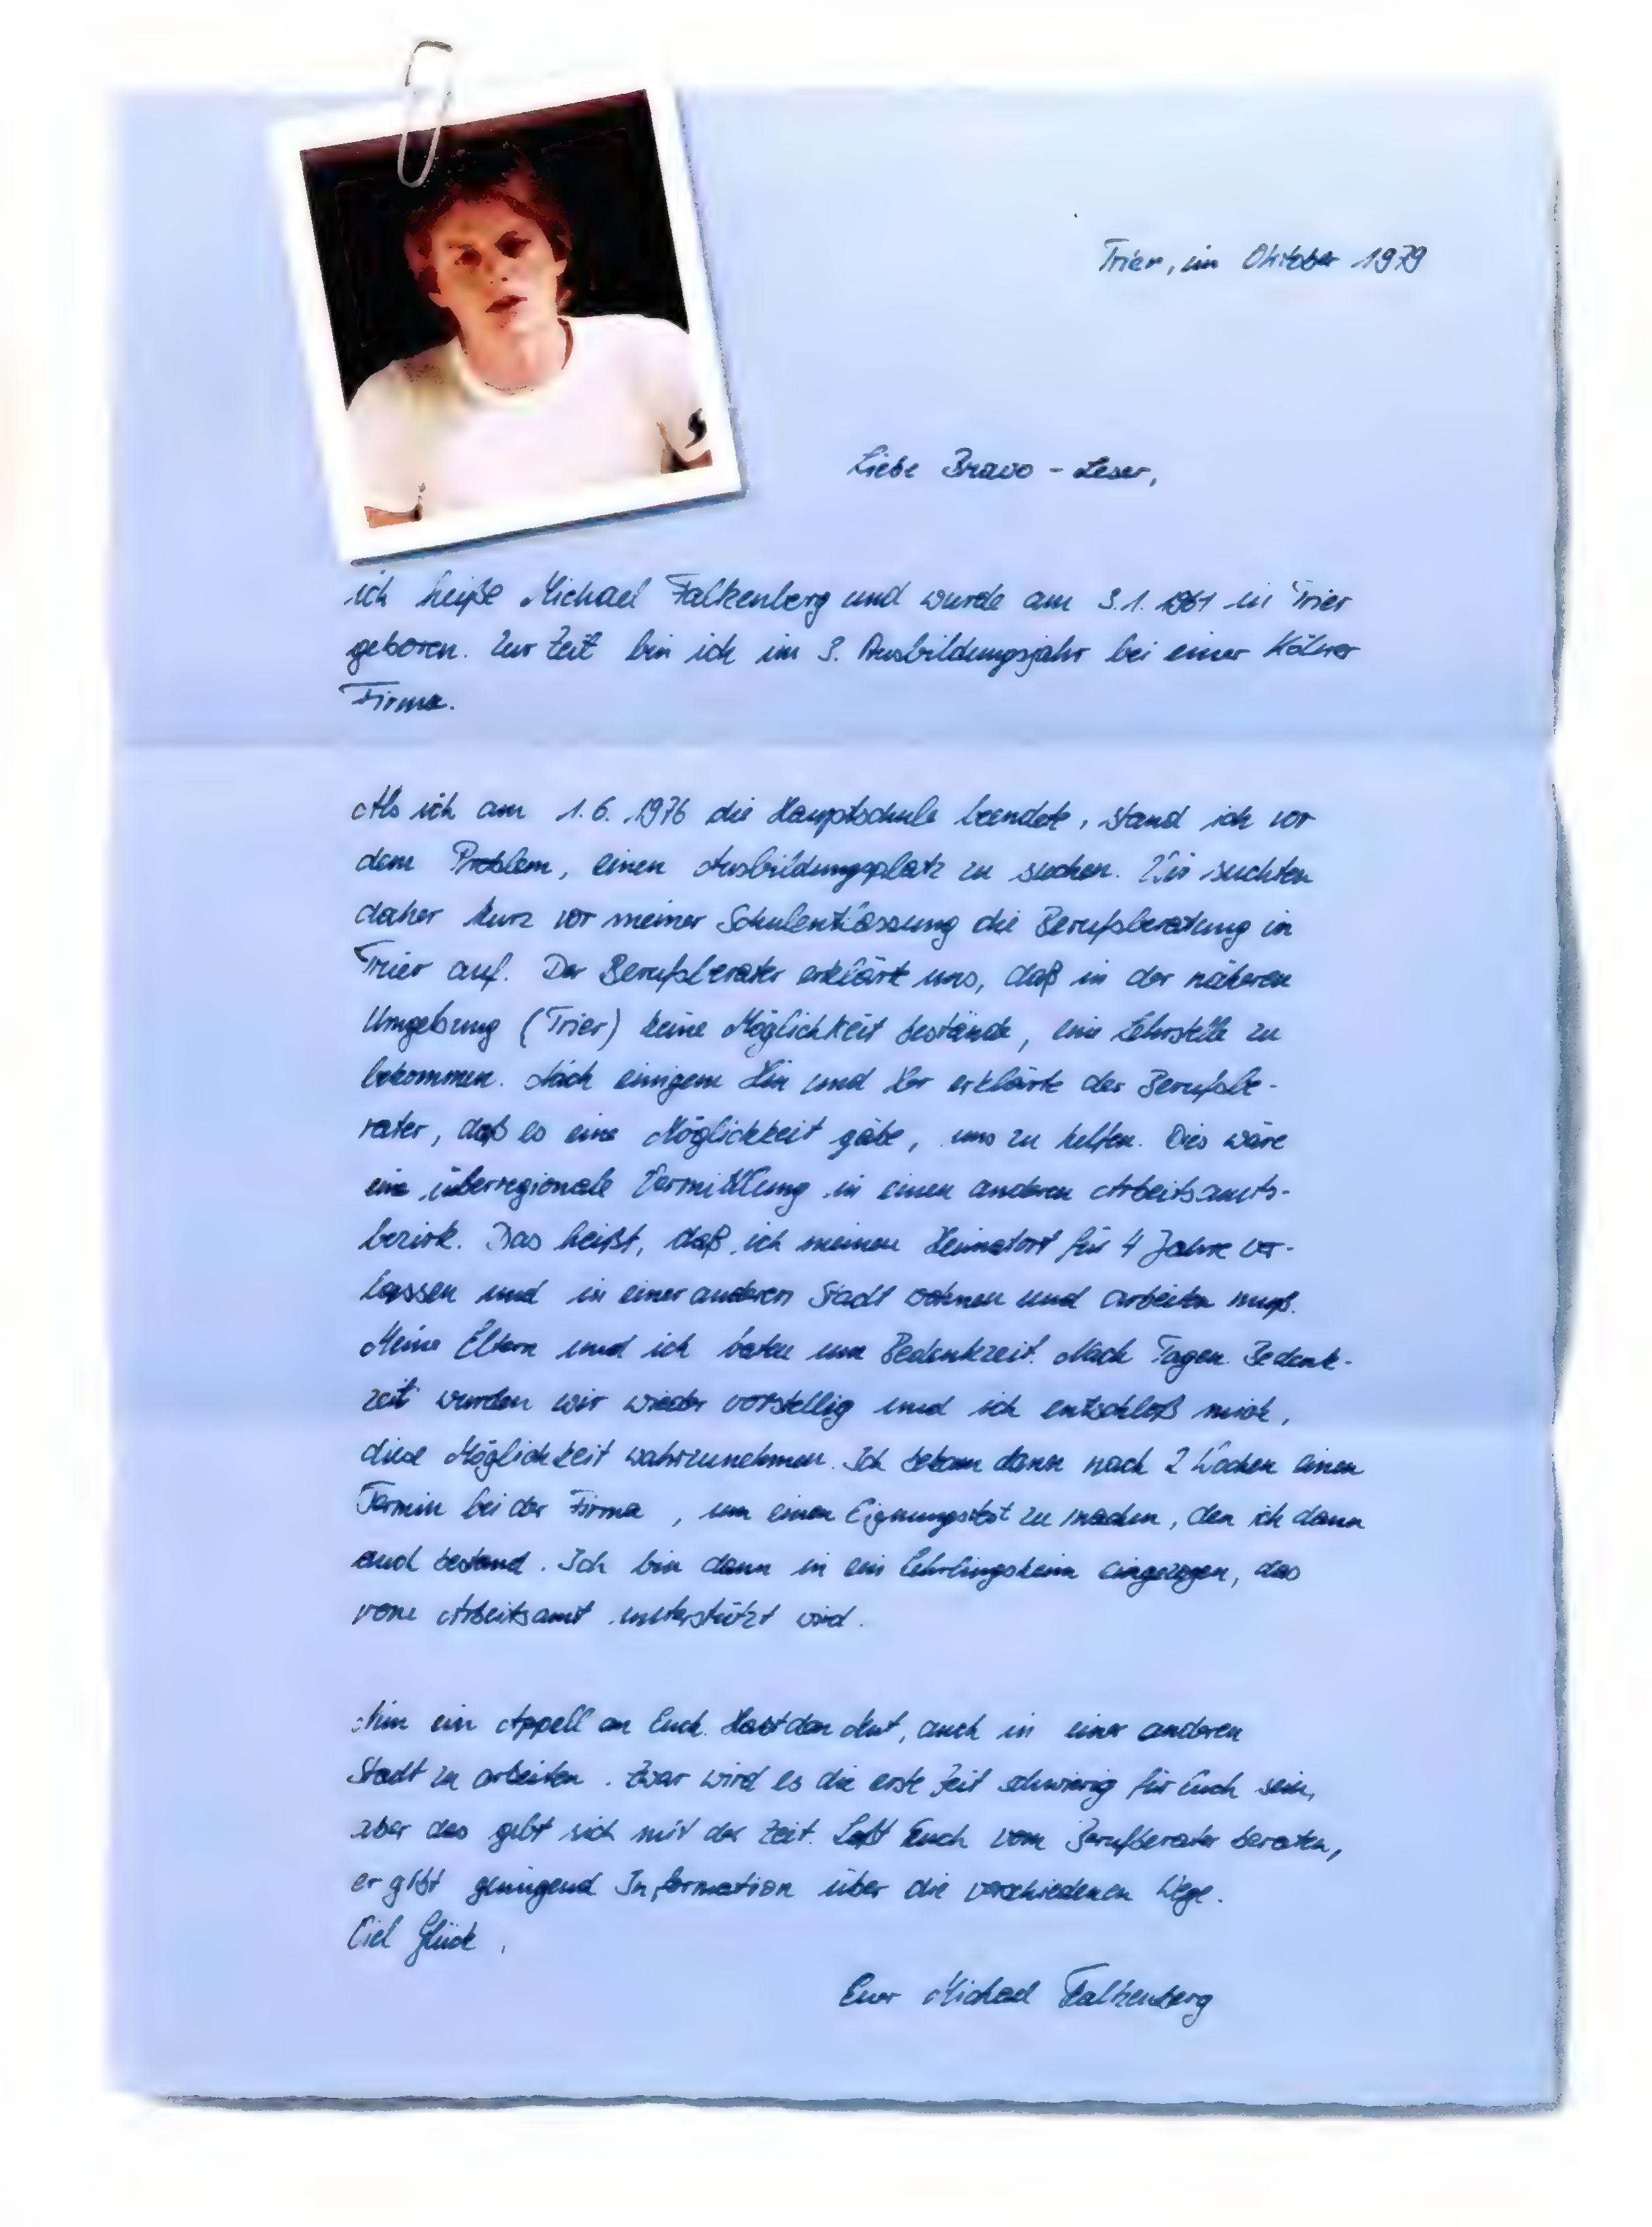 Trier, im Oktober 1979
Liebe Bravo-Leser,
ich heiße Michael Falkenberg und wurde am 3.1.1961 in Trier
geboren. Zur Zeit bin ich im 3. Ausbildungsjahr bei einer Kölner
Firma.
Als ich am 1.6.1976 die Hauptschule beendete, stand ich vor
dem Problem, einen Ausbildungsplatz zu suchen. Wir suchten
daher kurz vor meiner Schulentlassung die Berufsberatung in
Trier auf. Der Berufsberater erklärte uns, daß in der näheren
Umgebung (Trier) keine Möglichkeit bestände, eine Lehrstelle zu
bekommen. Nach einigem Hin und Her erklärte der Berufsbe-
rater, daß es eine Möglichkeit gäbe, uns zu helfen. Dies wäre
eine überregionale Vermittlung in einen anderen Arbeitsamts-
bezirk. Das heißt, daß ich meinen Heimatort für 4 Jahre ver-
lassen und in einer anderen Stadt wohnen und arbeiten muß.
Meine Eltern und ich baten um Bedenkzeit. Nach Tagen Bedenk-
zeit wurden wir wieder vorstellig und ich entschloß mich,
diese Möglichkeit wahrzunehmen. Ich bekam dann nach 2 Wochen einen
Termin bei der Firma , um einen Eignungstest zu machen, den ich dann
auch bestand. Ich bin dann in ein Lehrlingsheim eingezogen, das
vom Arbeitsamt unterstützt wird.
Nun ein Appell an Euch. Habt den Mut, auch in einer anderen
Stadt zu arbeiten. Zwar wird es die erste Zeit schwierig für Euch sein,
aber das gibt sich mit der Zeit. Laßt Euch vom Berufberater beraten,
er gibt genügend Information über die verschiedenen Wege.
Viel Glück,
Euer Michael Falkenberg